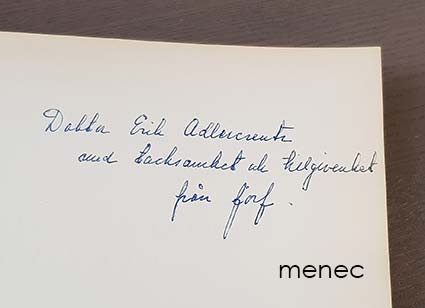 Doktor Erik Adlercreutz
med tacksamhet och tillgivenhet
från förf.
menec